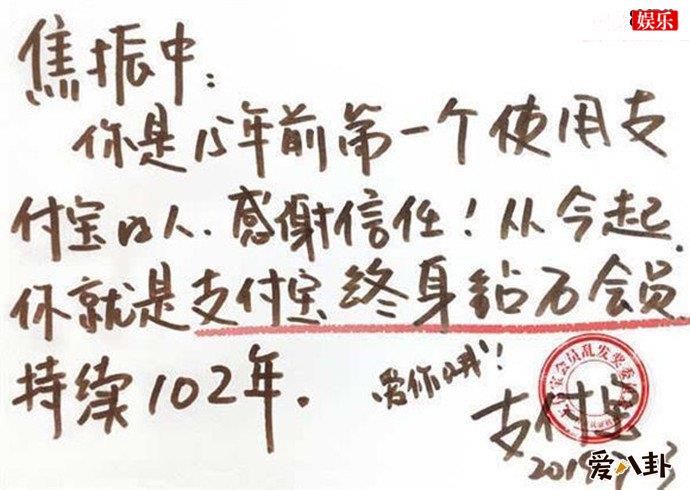 娱乐
焦振中：
你是15年前第一个使用支
付宝的人。感谢信任！从今起，
你就是支付宝终身钻石会员，
持续102年。
爱你哦！
宝会员乱发奖委
支付宝
爱八卦